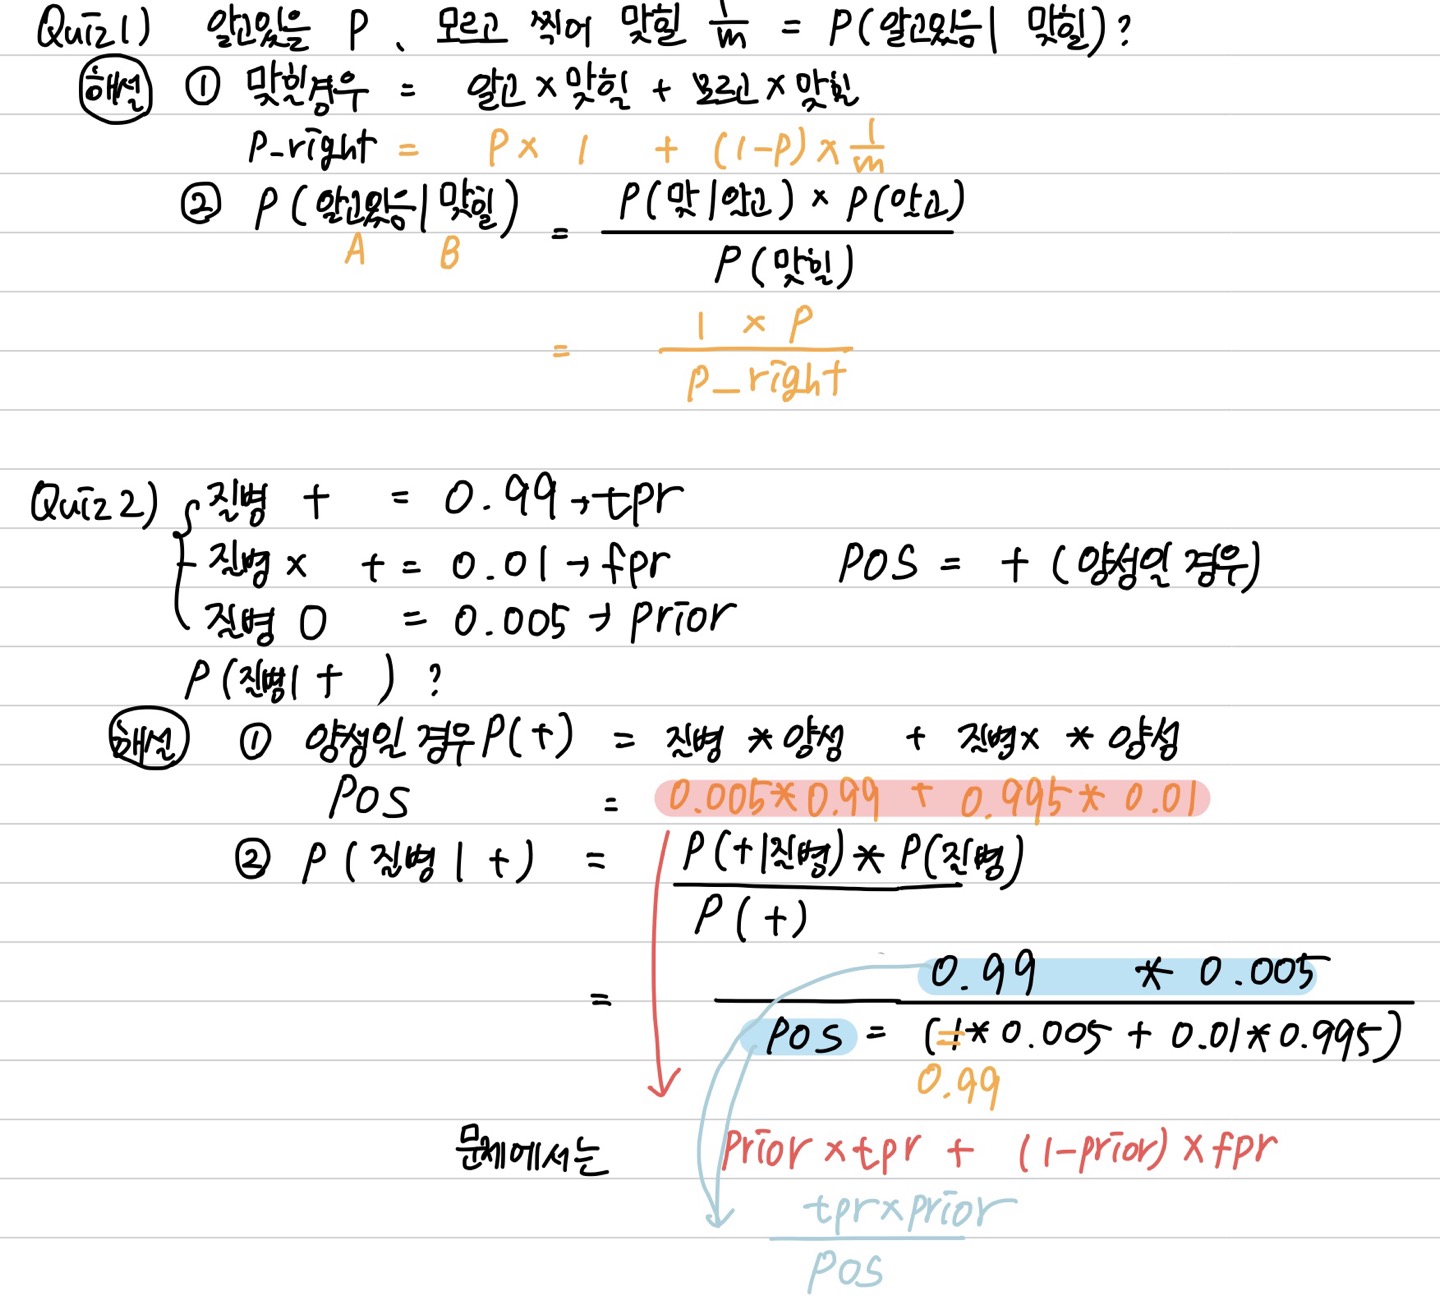 Quiz1) 알고있을 P, 모르고 찍어 맞힐 1/m = P(알고있음| 맞힐)?
해설 ① 맞힐경우 = 알고×맞힐 + 모르고×맞힐
P_right = P× 1 + (1-P)×1/m
② P(알고있음|맞힐) = P(맞|알고) × P(알고)
A B
P(맞힐)
= 1 × P
P_right
Quiz2) 질병 + = 0.99→tpr
질병× + = 0.01→fpr POS = + (양성일 경우)
질병 O = 0.005→prior
P(질병| + ) ?
해설 ① 양성일 경우 P(+) = 질병 * 양성 + 질병× * 양성
POS = 0.005*0.99 + 0.995*0.01
② P(질병|+) = P(+|질병)* P(질병)
P(+)
= 0.99 * 0.005
POS = (1* 0.005 + 0.01*0.995)
0.99
문제에서는 prior×tpr + (1-prior)×fpr
tpr×prior
POS